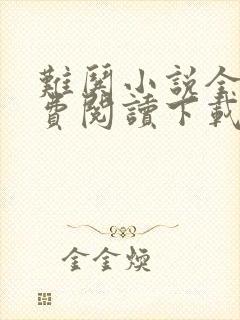 難與小説全
費閱讀下載
金金煥